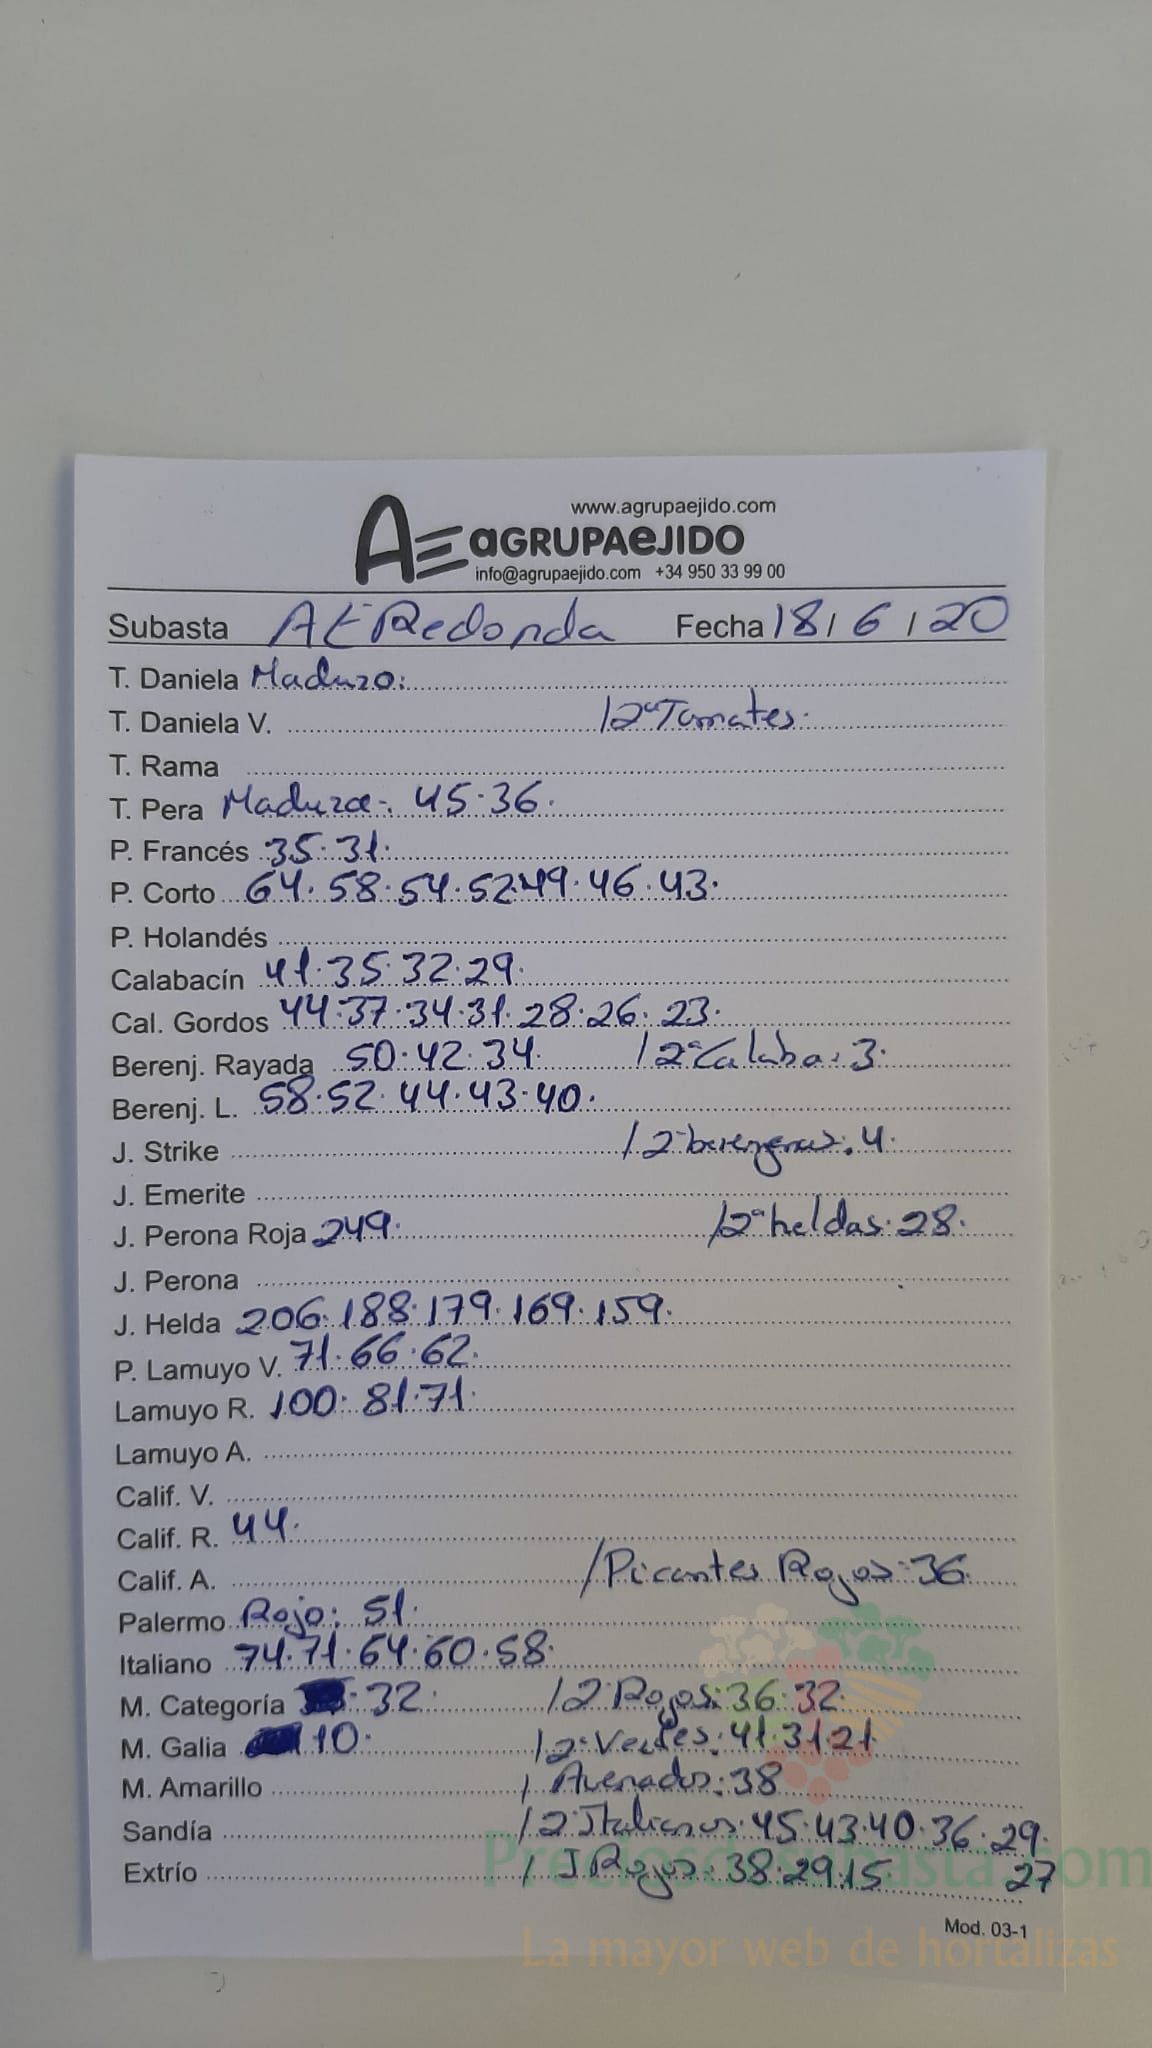 www.agrupaejido.com
AE aGRUPAeJIDO
info@agrupaejido.com +34 950 33 99 00
Subasta AE Redonda Fecha 18/6/20
T. Daniela Maduro:
T. Daniela V. /2ª Tomates.
T. Rama
T. Pera Madura. 45.36.
P. Francés 35.31.
P. Corto 64.58.54.52.49.46.43.
P. Holandés
Calabacín 41.35.32.29.
Cal. Gordos 44.37.34.31.28.26.23.
Berenj. Rayada 50.42.34. /2ª Calaba:3.
Berenj. L. 58.52.44.43.40.
J. Strike /2ª berenjenas:4.
J. Emerite
J. Perona Roja 249. /2ª heldas.28.
J. Perona
J. Helda 206.188.179.169.159.
P. Lamuyo V. 71.66.62.
Lamuyo R. 100.81.71.
Lamuyo A.
Calif. V.
Calif. R. 44.
Calif. A. /Picantes Rojos:36.
Palermo Rojo: 51.
Italiano 74.71.64.60.58.
M. Categoría .32. /2ª Rojos:36.32.
M. Galia 10. /2ª Verdes:41.31.21
M. Amarillo / :38
Sandía /2ª Italianos:45.43.40.36.29.
Extrío / J Rojos:38.29.15 27
Mod. 03-1
Preciosdesubasta.com
La mayor web de hortalizas